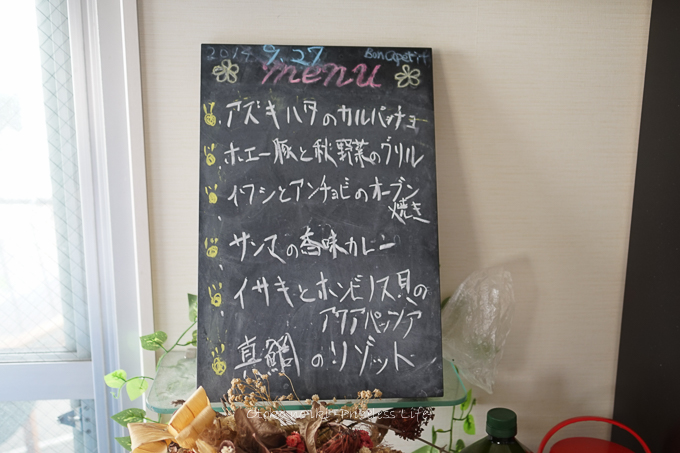 2014. 9.27 Bon apetit
menu
アズキハタのカルパッチョ
ホエー豚と秋野菜のグリル
イワシとアンチョビのオーブン
焼き
サンマの香味カレー
イサキとホンビノス貝の
アクアパッツア
真鯛のリゾット